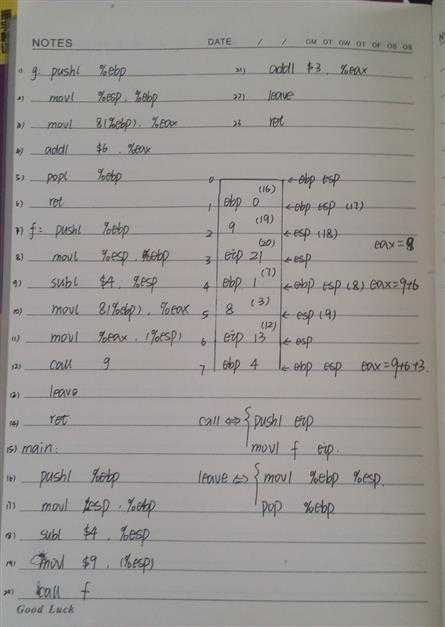 NOTES DATE / / OM OT OW OT OF OS OS
1) g: pushl %ebp
2) movl %esp, %ebp
3) movl 8(%ebp), %eax
4) addl $6, %eax
5) popl %ebp
6) ret
7) f: pushl %ebp
8) movl %esp %ebp
9) subl $4, %esp
10) movl 8(%ebp), %eax
11) movl %eax, (%esp)
12) call g
13) leave
14) ret
15) main:
16) pushl %ebp
17) movl %esp, %ebp
18) subl $4, %esp
19) movl $9, (%esp)
20) call f
21) addl $3, %eax
22) leave
23 ret
0 ← ebp esp
(16)
1 ebp 0 ← ebp esp (17)
(19)
2 9 ← esp (18)
eax=8
(20)
3 eip 21 ← esp
(7)
4 ebp 1 ← ebp esp (8) eax=9+6
(3)
5 8 ← esp (9)
(12)
6 eip 13 ← esp
7 ebp 4 ← ebp esp eax=9+6+3.
call ⇔ { pushl eip
movl f eip.
leave ⇔ { movl %ebp %esp.
pop %ebp
Good Luck